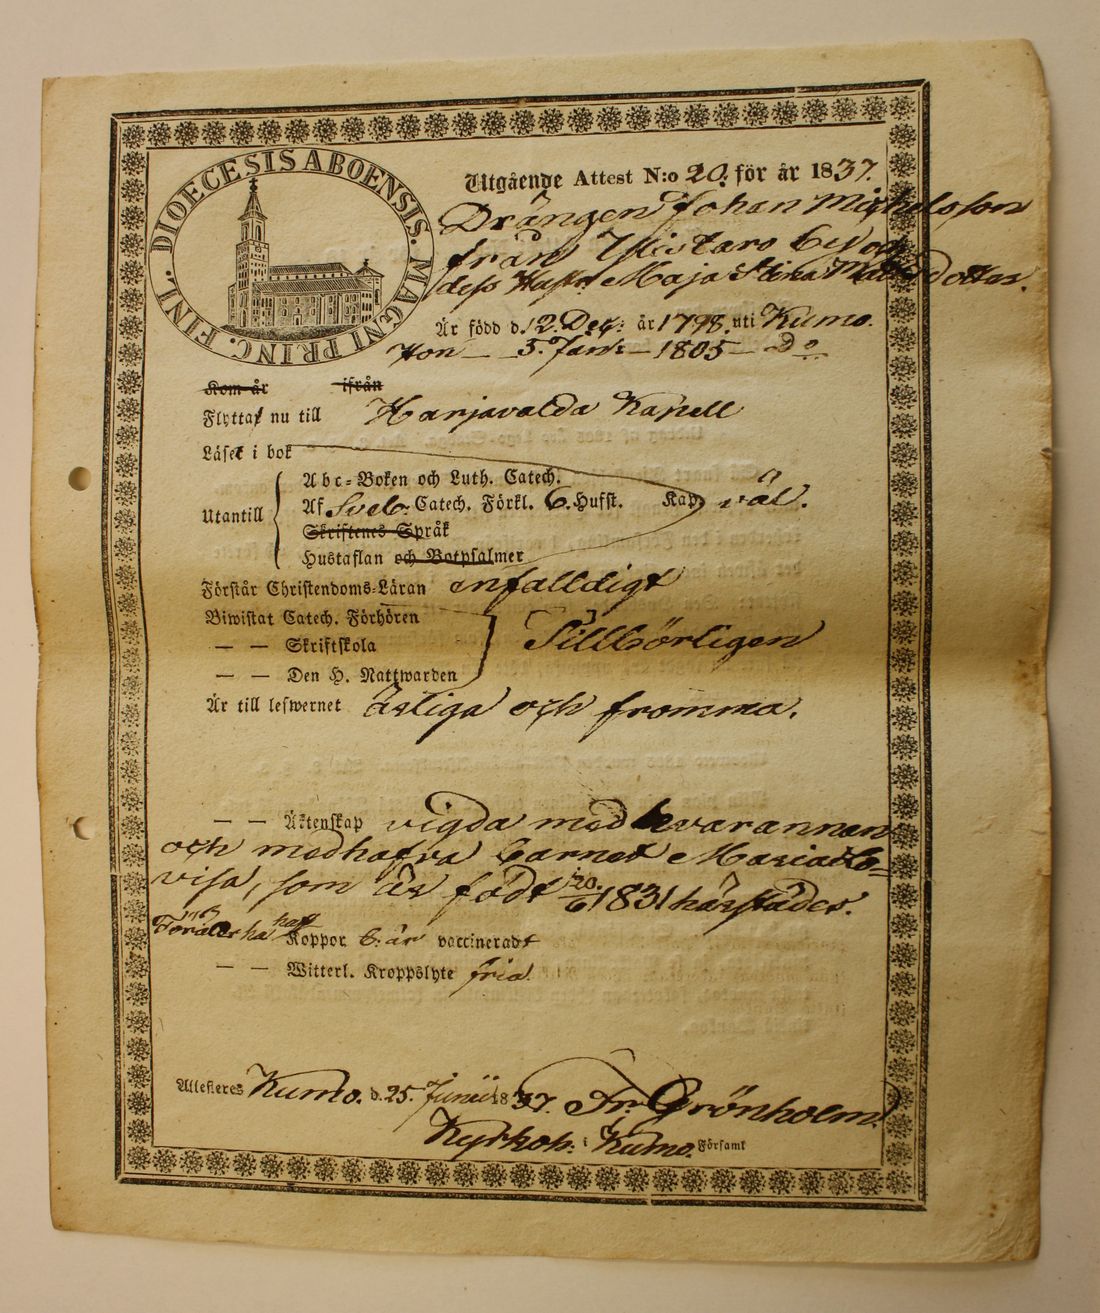 DIOECESIS ABOENSIS. MAGNI PRINC. FINL.
Utgående Attest N:o 20. för år 1837.
Drängen Johan Michelsson
från Ylistaro by och
dess Hustr Maja Stina Mattsdotter.
Är född d. 12. Dec: år 1798. uti Kumo.
Hon — 5. Jan: — 1805 — Do
Kom år ifrån
Flytta nu till Harjavalda Kapell
Läser i bok
Utantill
Abc-Boken och Luth. Catech.
Af Sveb. Catech. Förkl. 6. Hufst. Kap väl.
Skriftenes Språk
Hustaflan och Botpsalmer
Förstår Christendoms-Läran enfalldigt
Biwistat Catech. Förhören
— — Skriftskola Tillbörligen
— — Den H. Nattwarden
Är till lefwernet ärliga och fromma.
— — Äktenskap vigda med hvarannan
och medhafva barnet Maria Lo-
visa, som är född 20/6 1831 härstädes.
Föräldr ha haft
Koppor b: är vaccineradt
— — Witterl. Kroppslyte fria.
Attesteres Kumo. d. 25. Junii 1837. Fr. Grönholm.
Kyrkoh. i Kumo. Församl